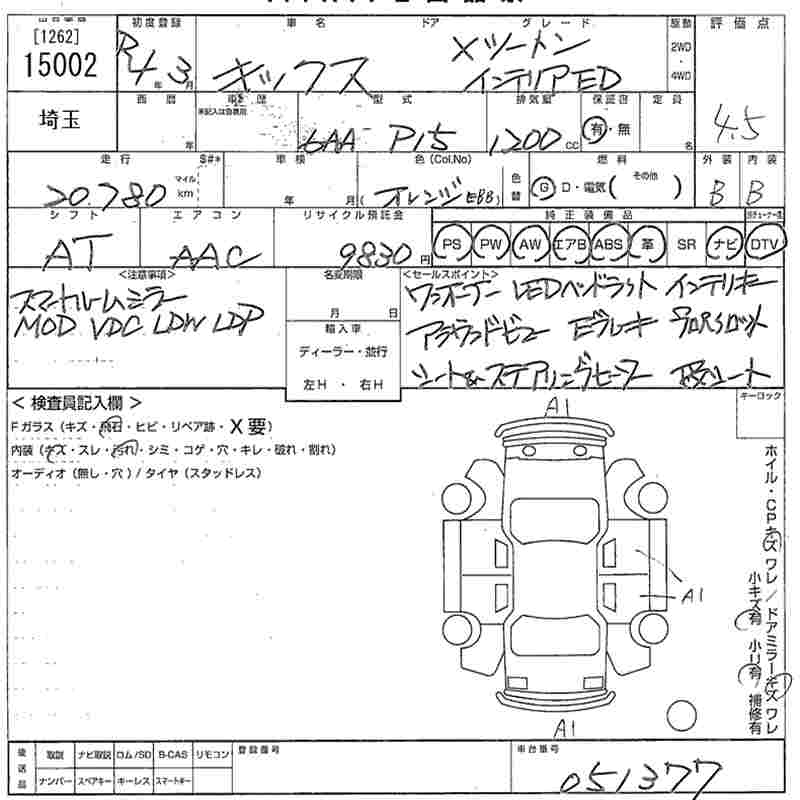 出品番号 初度登録 車名 ドア グレード 駆動 評価点
[1262]
15002 R4年3月 キックス Xツートン インテリアED 2WD・4WD 4.5
埼玉 西暦 年 車歴 未記入は自家用 型式 排気量 保証書 定員
6AA P15 1200cc 有・無 名
走行 $#* 車検 色(Col.No) 色替 燃料 外装 内装
20.780 マイル km 年 月 (オレンジEBB) G D・電気( その他 ) B B
シフト エアコン リサイクル預託金 純正装備品
AT AAC 9830円 PS PW AW エアB ABS 革 SR ナビ DTV
<注意事項> 名変期限 <セールスポイント>
スマートルームミラー
MOD VDC LDW LDP
月 日
輸入車
ディーラー・並行
左H・右H
ワンオーナー LEDヘッドライト インテリキー
アラウンドビュー Eブレーキ プロパイロット
シート&ステアリングヒーター 革シート
キーロック
< 検査員記入欄 >
Fガラス(キズ・飛石・ヒビ・リペア跡・X要)
内装(キズ・スレ・汚れ・シミ・コゲ・穴・キレ・破れ・割れ)
オーディオ(無し・穴)/タイヤ(スタッドレス)
A1
A1
A1
ホイル・CPキズ ワレ/ドアミラーキズ ワレ
小キズ有 小凹有/補修有
後送品 取説 ナビ取説 ロム/SD B-CAS リモコン 登録番号 車台番号
ナンバー スペアキー キーレス スマートキー 051377